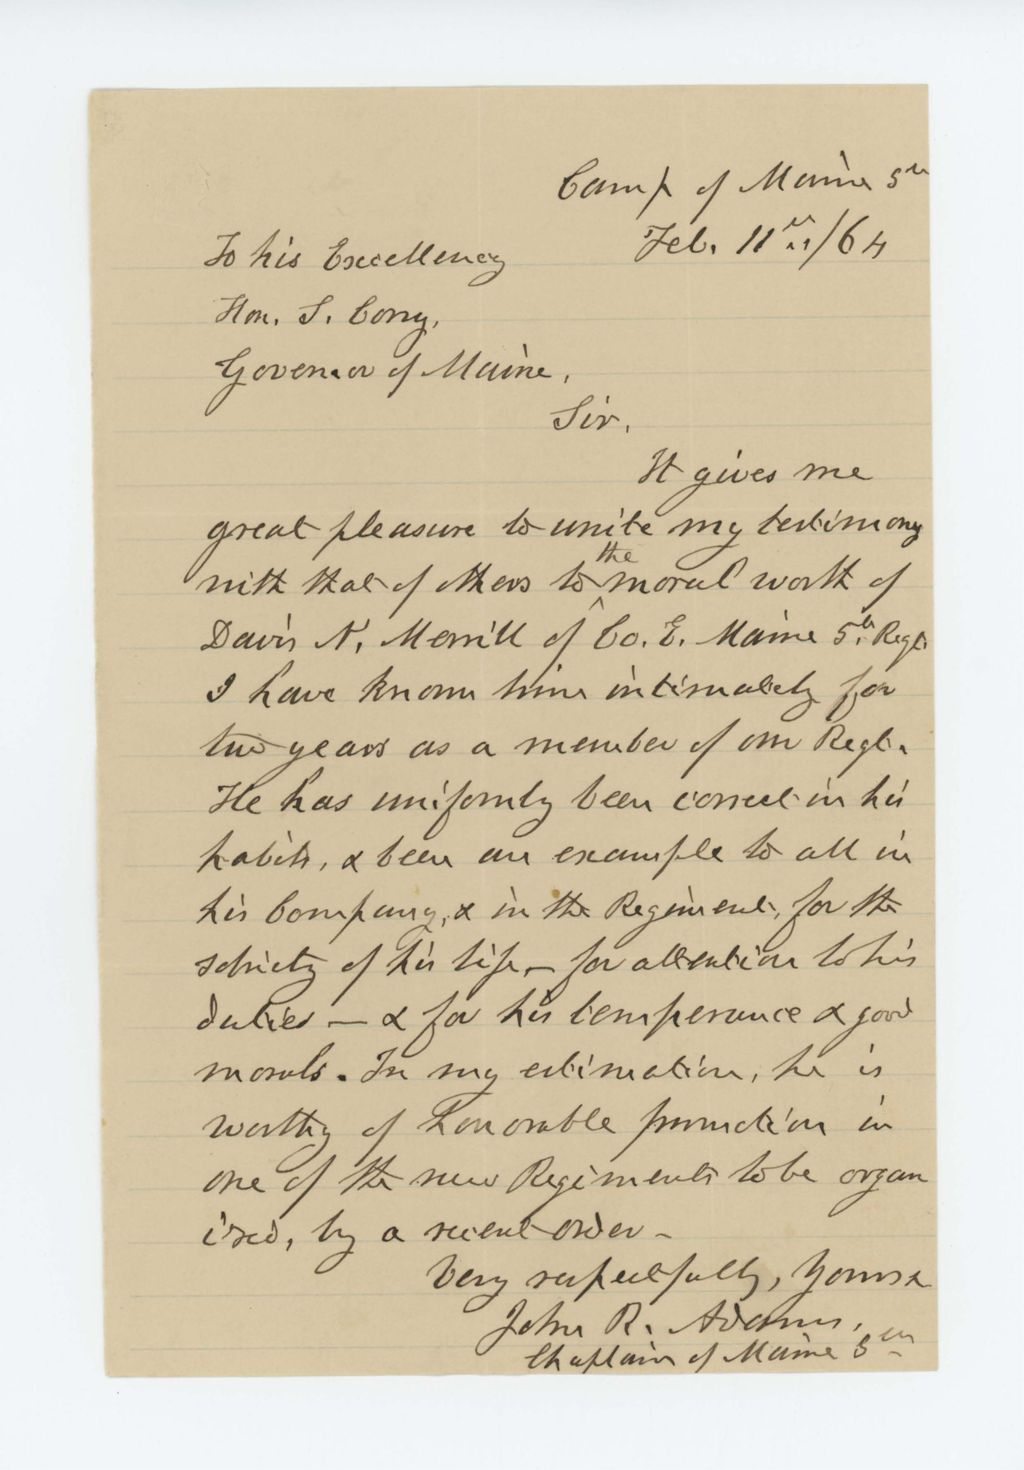 Camp of Maine 5th
Feb. 11th,/64
To his Excellency
Hon. S. Cony,
Governor of Maine,
Sir,
It gives me
great pleasure to unite my testimony
with that of others to the moral worth of
Davis N. Merrill of Co. E. Maine 5th. Regt.
I have known him intimately for
two years as a member of our Regt.
He has uniformly been correct in his
habits, & been an example to all in
his Company, & in the Regiment, for the
sobriety of his life, – for attention to his
duties – & for his temperance & good
morals. In my estimation, he is
worthy of honorable promotion in
one of the new Regiments to be organ
ized, by a recent order –
Very respectfully, Yours &
John R. Adams,
Chaplain of Maine 5th